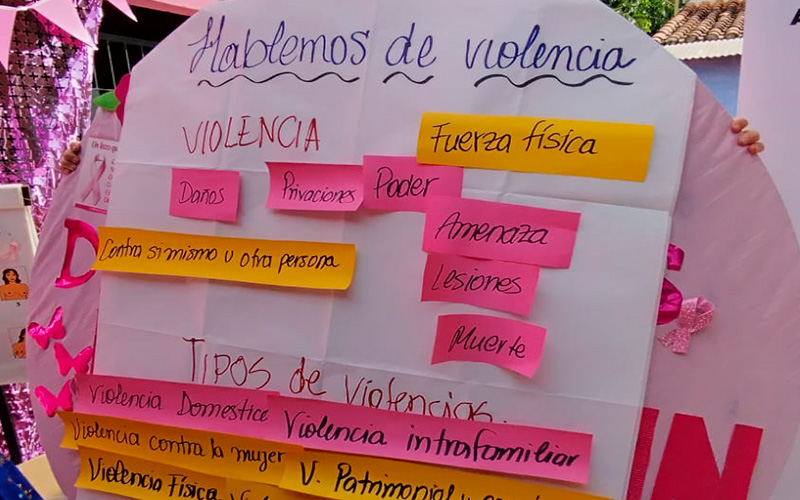 Hablemos de violencia
VIOLENCIA
Fuerza física
Daños
Privaciones
Poder
Amenaza
Contra si mismo u otra persona
Lesiones
Muerte
TIPOS de Violencias
Violencia Domestice
Violencia intrafamiliar
Violencia contra la mujer
V. Patrimonial y
Violencia Física
IN